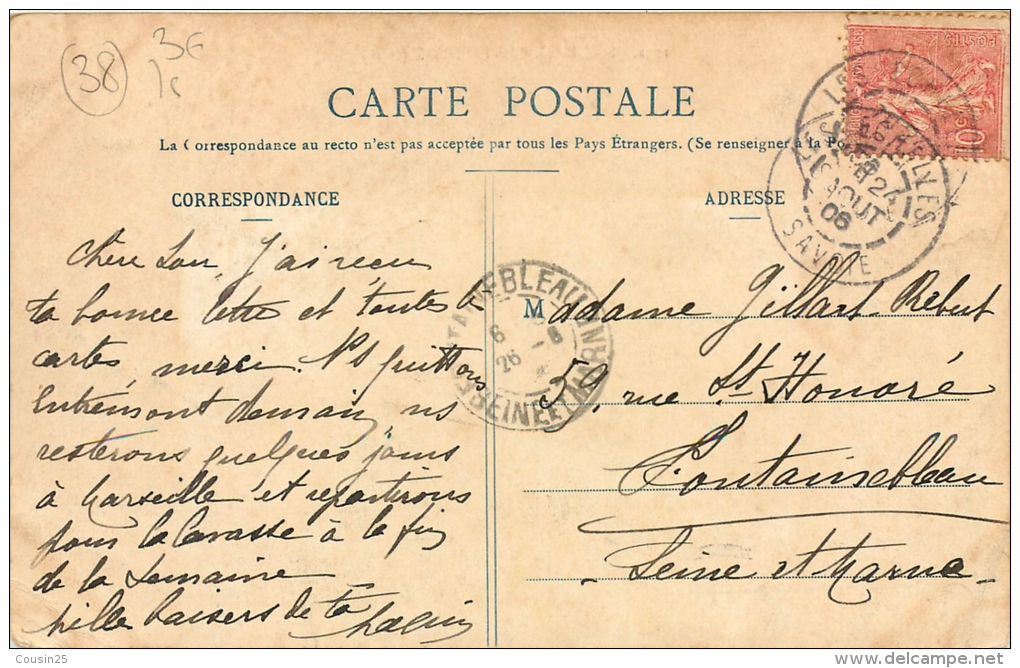 38
3€
CARTE POSTALE
La Correspondance au recto n'est pas acceptée par tous les Pays Étrangers. (Se renseigner à la Po
CORRESPONDANCE
ADRESSE
POSTES
10
AOUT
06
SAVOIE
J'ai reçu
ta bonne lettre et toutes
cartes merci. Ns quittons
Entremont demain, ns
resterons quelques jours
à Marseille et repartirons
pour la à la fin
de la semaine
Mille baisers de ta
Madame Gillart Rebut
59, rue St Honoré
Fontainebleau
Seine et Marne
SEINE ET MARNE
Cousin25
www.delcampe.net